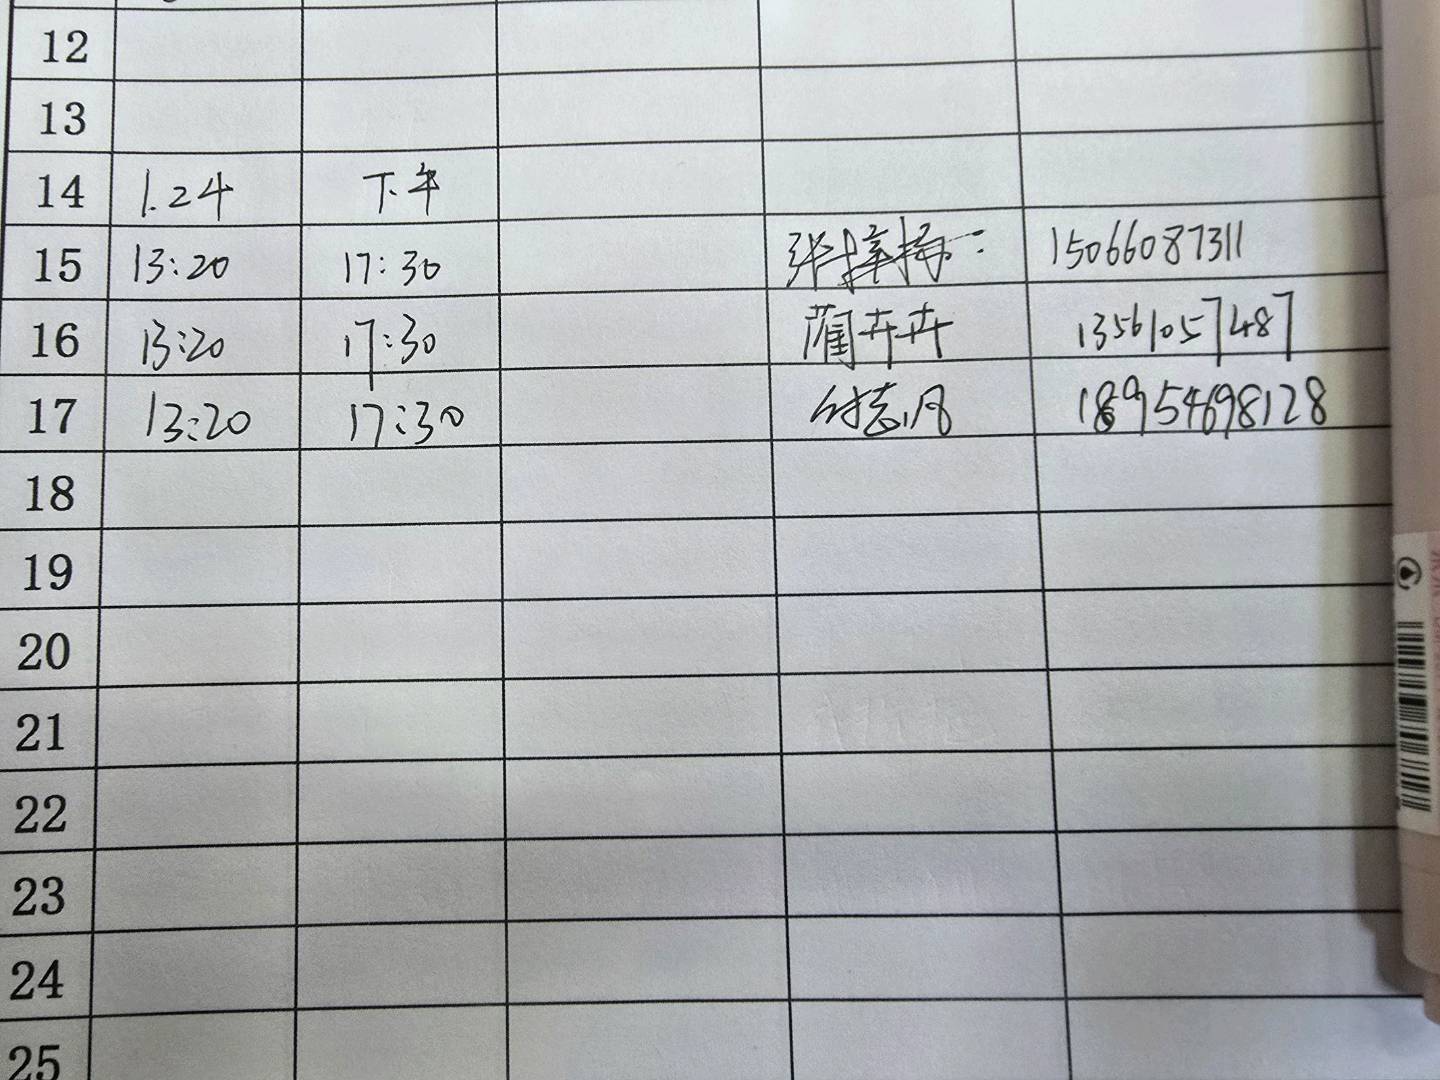 12
13
14 1.24 下午
15 13:20 17:30 15066087311
16 13:20 17:30 蔺卉卉 13561057487
17 13:20 17:30 付志凡 18954698128
18
19
20
21
22
23
24
25